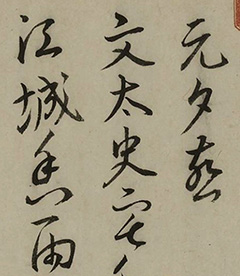 元夕燕
文太史宅
江城雨